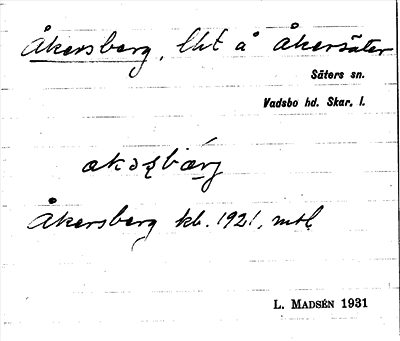 Åkersberg, lht å Åkersäter
Säters sn.
Vadsbo hd. Skar. l.
Åkersberg kb. 1921, mtl
L. MADSÉN 1931